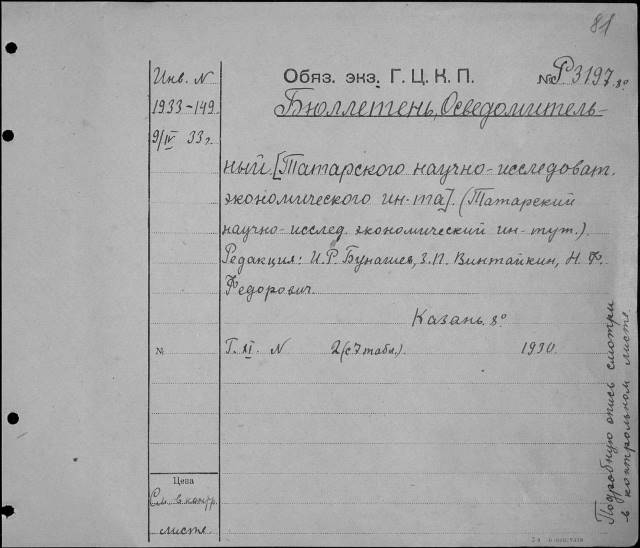 81
Инв. N
1933-149
9/IV 33 г.
Обяз. экз. Г. Ц. К. П. № Р3197 8°
Бюллетень, Осведомитель-
ный. [Татарского научно-исследоват.
экономического ин-та]. (Татарский
научно-исслед. экономический ин-тут.).
Редакция: И.Р. Бунашев, З.П. Винтайкин, Н. Ф.
Федорович.
Казань. 8°
№ Г. XI. N 2 (с 7 табл.). 1930.
Цена
См. в контр.
листе
Подробную опись смотри
в контрольном листе